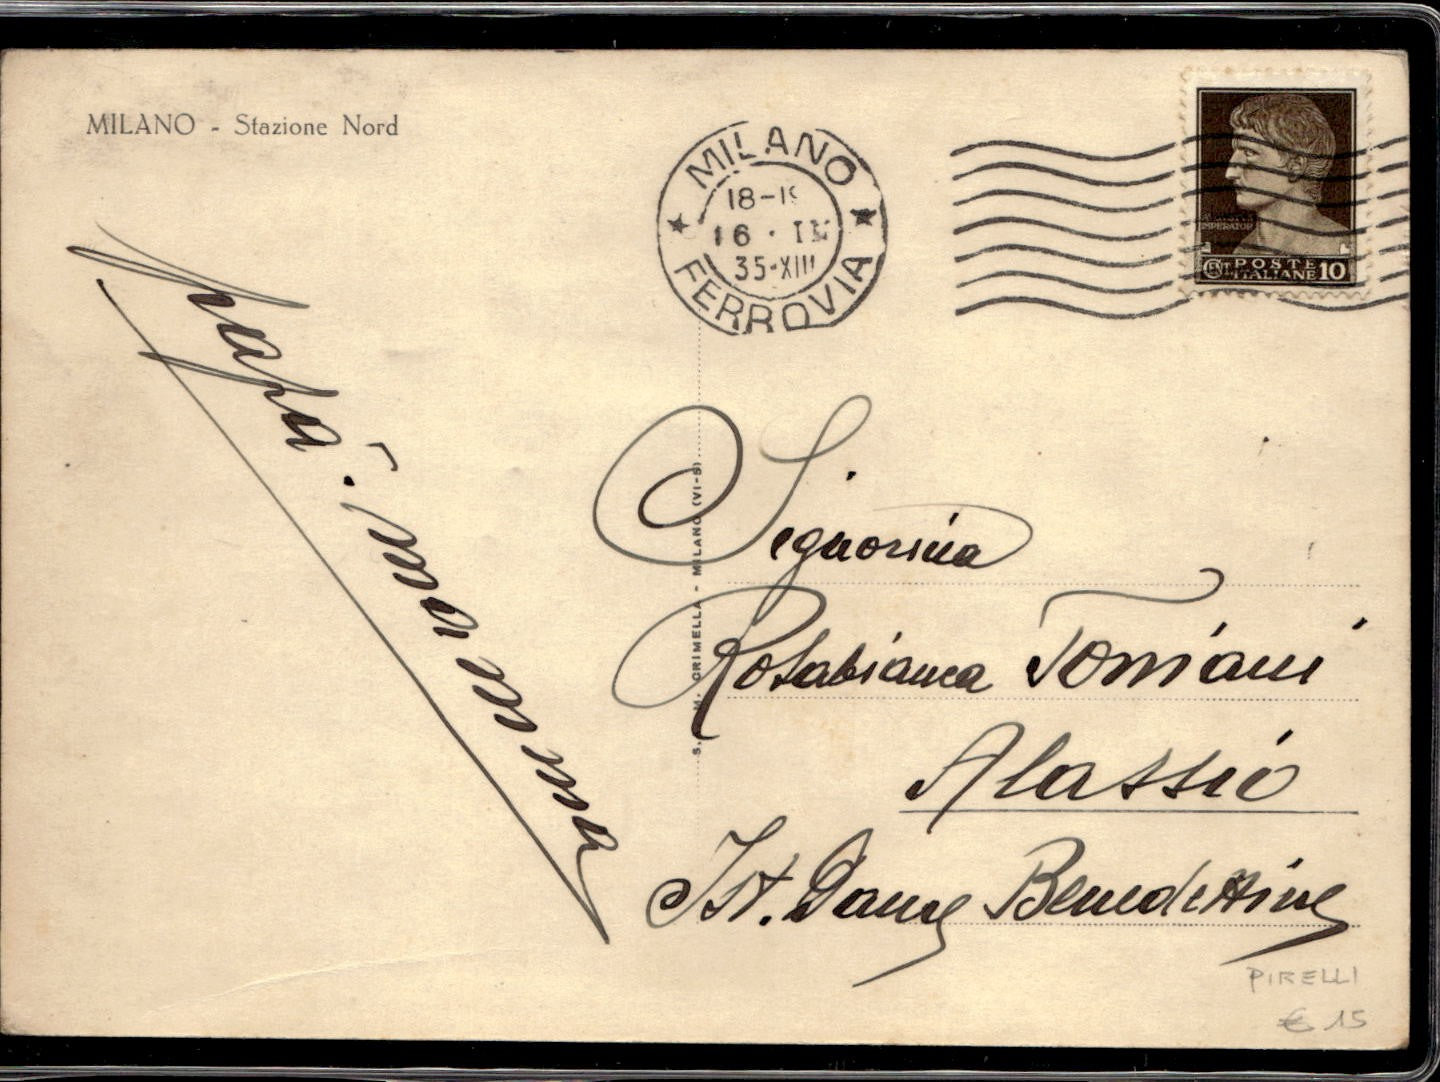 MILANO - Stazione Nord
MILANO
18-19
16 · IX
35-XIII
FERROVIA
IMPERATOR
CENT. POSTE
ITALIANE 10
papà. mamma
S. M. CRIMELLA - MILANO (VI-S)
Signorina
Rosabianca
Alassio
Ist. Dame Benedettine
PIRELLI
€ 15